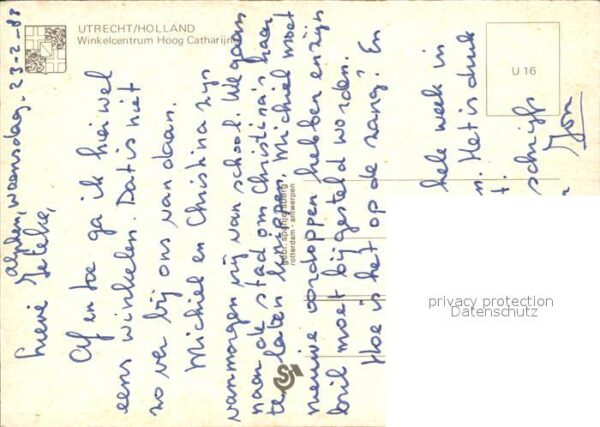 UTRECHT/HOLLAND
Winkelcentrum Hoog Catharijne
U 16
Alphen, woensdag. 23-2-83
Lieve Jeteke,
Af en toe ga ik hier wel
eens winkelen. Dat is niet
zo ver bij ons vandaan.
Michiel en Christina zijn
vanmorgen vrij van school. We gaan
naar de stad om Christina's haar
te laten knippen. Michiel moet
nieuwe oordoppen hebben en zijn
bril moet bijgesteld worden.
Hoe is het op de zang? En
hele week in
n. Het is druk
t.
schrijfs
gebr. spanjersberg
rotterdam - antwerpen
privacy protection
Datenschutz